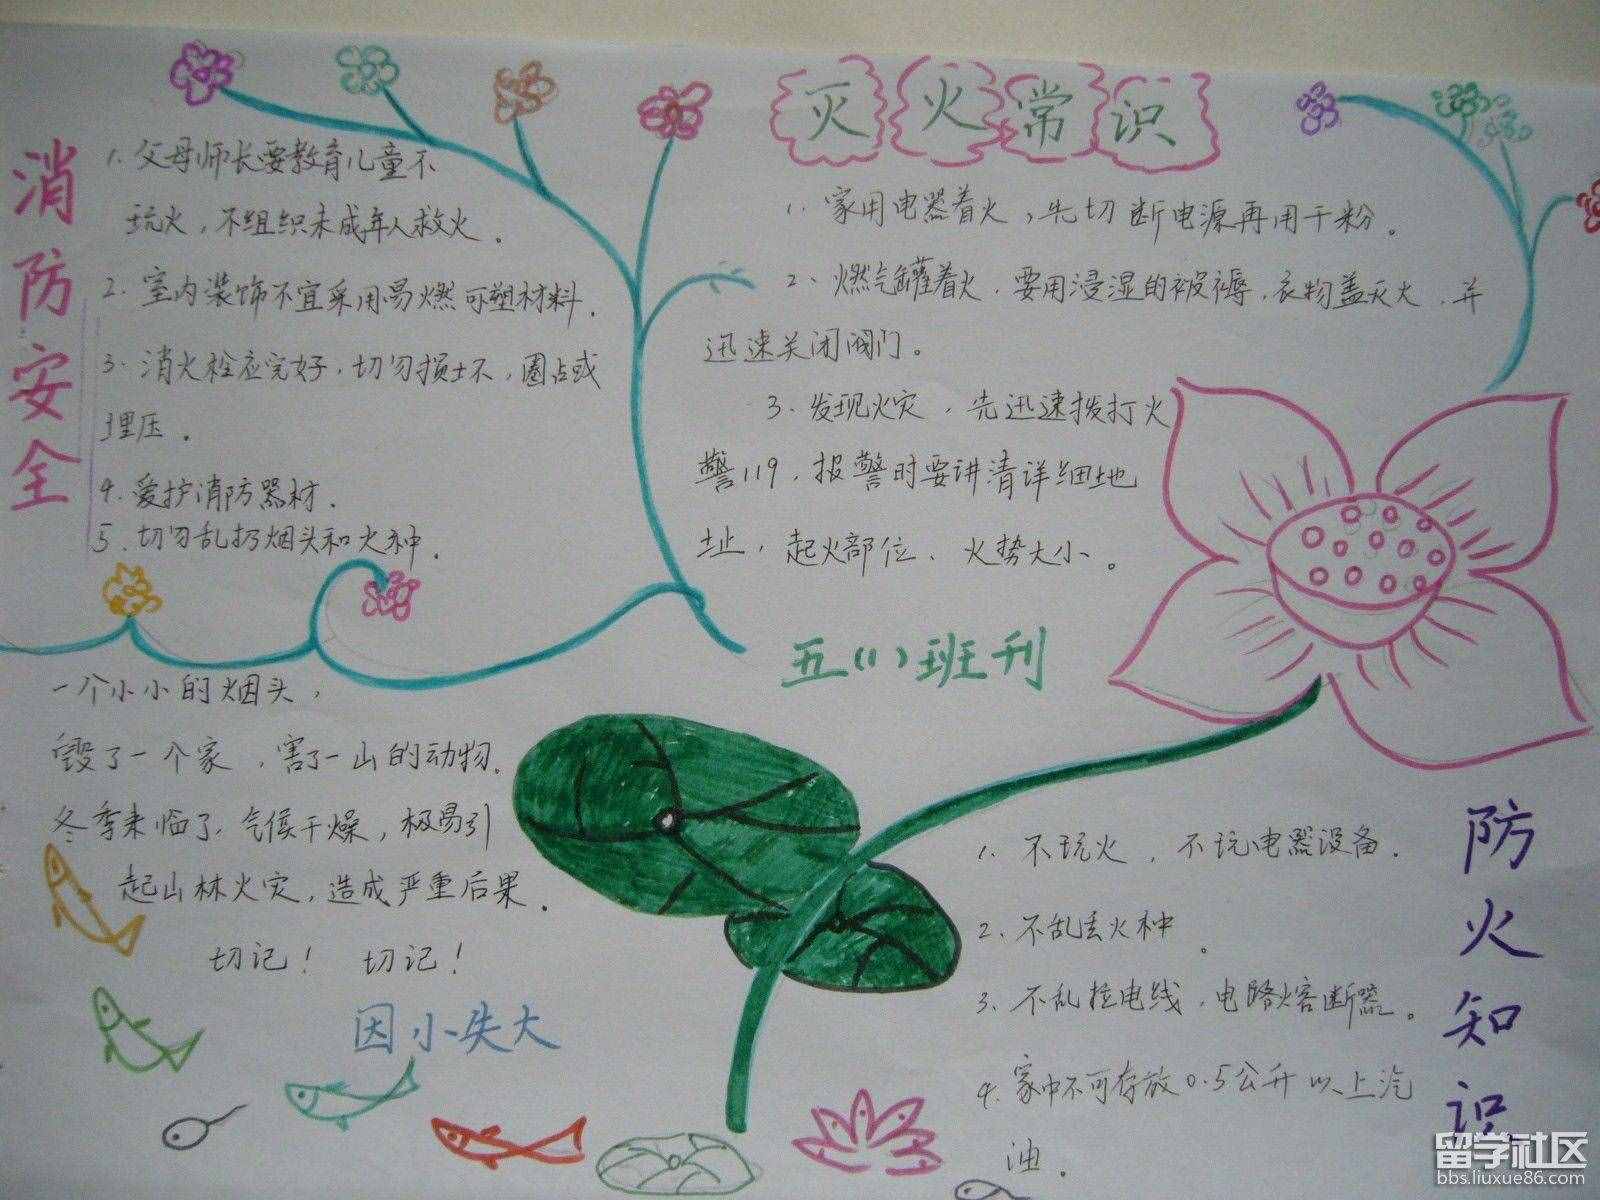 消防安全
1. 父母师长要教育儿童不
玩火，不组织未成年人救火。
2. 室内装饰不宜采用易燃可塑材料.
3. 消火栓应完好，切勿损坏，圈占或
埋压。
4. 爱护消防器材.
5. 切勿乱扔烟头和火种.
灭火常识
1. 家用电器着火，先切断电源再用干粉。
2、燃气罐着火，要用浸湿的被褥，衣物盖灭火，并
迅速关闭阀门。
3、发现火灾，先迅速拨打火
警119，报警时要讲清详细地
址，起火部位、火势大小。
五(1)班刊
一个小小的烟头，
毁了一个家，害了一山的动物.
冬季来临了，气候干燥，极易引
起山林火灾，造成严重后果.
切记！ 切记！
因小失大
防火知识
1. 不玩火，不玩电器设备.
2. 不乱丢火种。
3. 不乱拉电线，电路熔断器。
4. 家中不可存放0.5公升以上汽
油.
留学社区
bbs.liuxue86.com